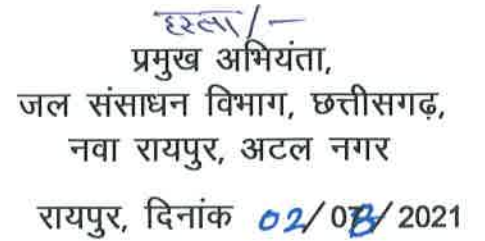 हस्ता/-
प्रमुख अभियंता,
जल संसाधन विभाग, छत्तीसगढ़,
नवा रायपुर, अटल नगर
रायपुर, दिनांक 02/08/2021